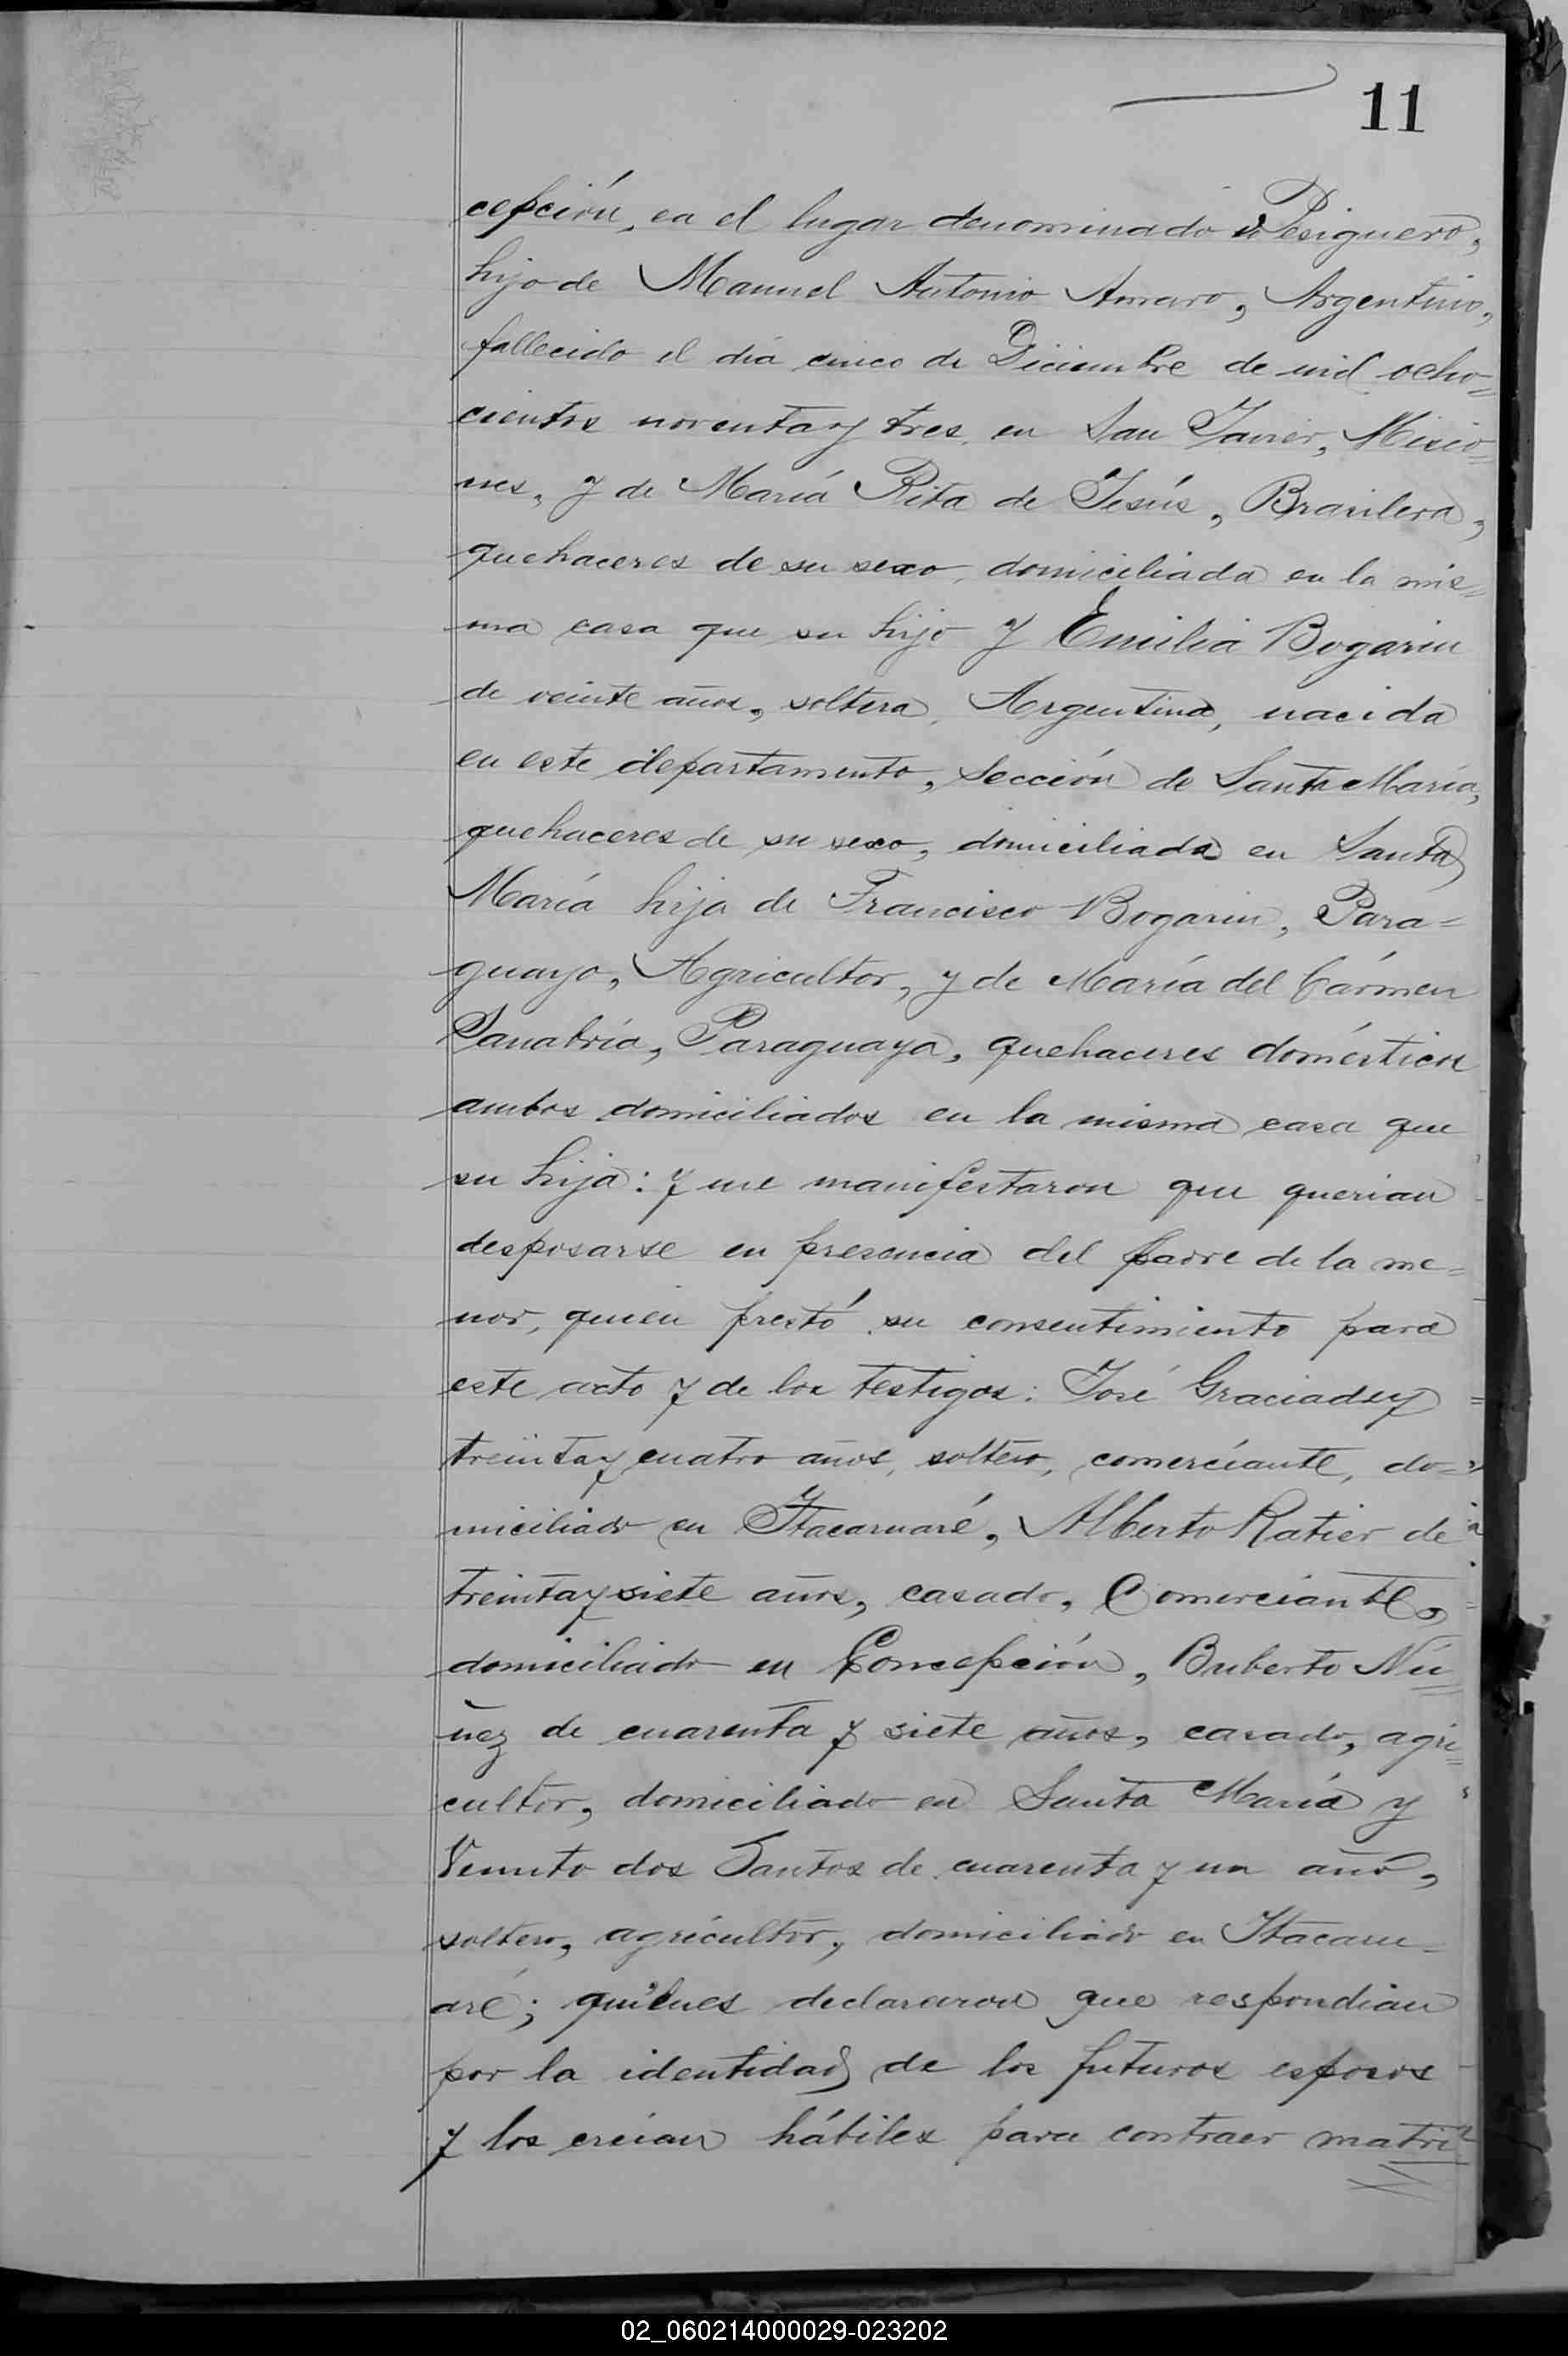 11
cepción, en el lugar denominado Pesiguero,
hijo de Manuel Antonio Amaro, Argentino,
fallecido el día cinco de Diciembre de mil ocho=
cientos noventa y tres en San Javier, Misio=
nes, y de María Rita de Jesús, Brasilera,
quehaceres de su sexo, domiciliada en la mis=
ma casa que su hijo y Emilia Bogarin
de veinte años, soltera, Argentina, nacida
en este departamento, Sección de Santa María,
quehaceres de su sexo, domiciliada en Santa
María hija de Francisco Bogarin, Para=
guayo, Agricultor, y de María del Cármen
Sanabria, Paraguaya, quehaceres domésticos
ambos domiciliados en la misma casa que
su hija: y me manifestaron que querian
desposarse en presencia del padre de la me=
nor, quien prestó su consentimiento para
este acto y de los testigos: José Graciadey
treinta y cuatro años, soltero, comerciante, do=
miciliado en Itacaruaré, Alberto Ratier de
treinta y siete años, casado, Comerciante,
domiciliado en Concepción, Ruberto Nú=
ñez de cuarenta y siete años, casado, agri=
cultor, domiciliado en Santa María y
dos Santos de cuarenta y un año,
soltero, agricultor, domiciliado en Itacaru=
aré; quienes declararon que respondian
por la identidad de los futuros esposos
y los creian hábiles para contraer matri=
02_060214000029-023202